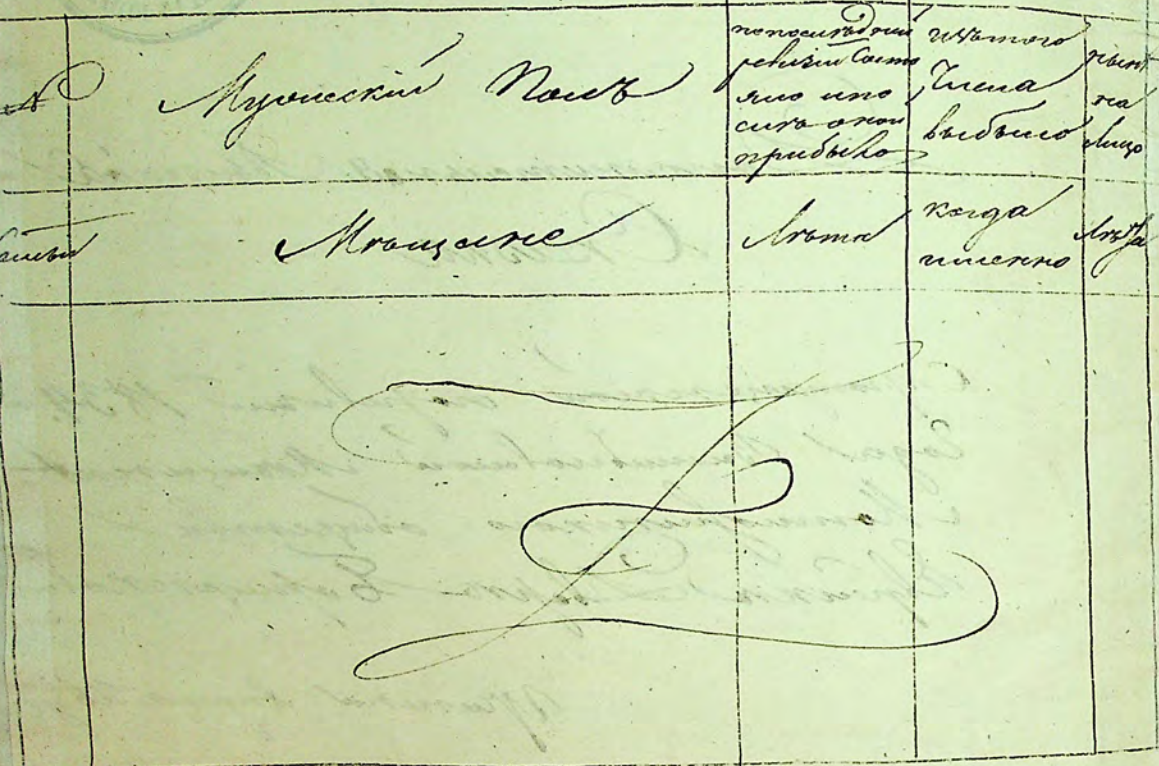 № Мужескій Полъ
по последней
ревизіи Состо
яло и по
слѣ оной
прибыло
изътого
Числа
выбыло
нынѣ
на
лицо
Семьи
Мѣщане
Лѣта
когда
именно
Лѣта